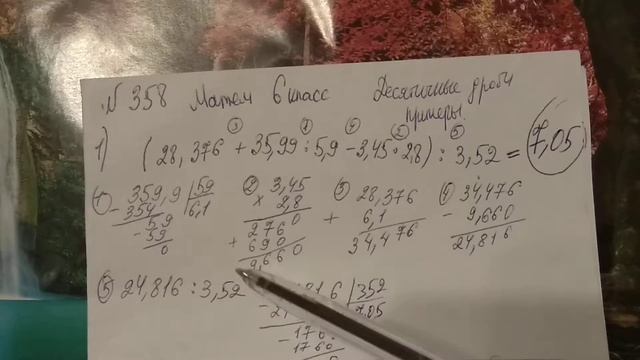 N 358 Матем 6 класс Десятичные дроби
примеры.
③ ① ④ ② ⑤
1) (28,376 + 35,99 : 5,9 - 3,45 · 2,8) : 3,52 = 7,05
① 359,9 | 59 ② 3,45 ③ 28,376 ④ 34,476
- 354 | 6,1 × 2,8 + 6,1 - 9,660
59 2760 34,476 24,816
- 59 + 690
0 9,660
⑤ 24,816 : 3,52 816 | 352
7,05
- 1760
1760